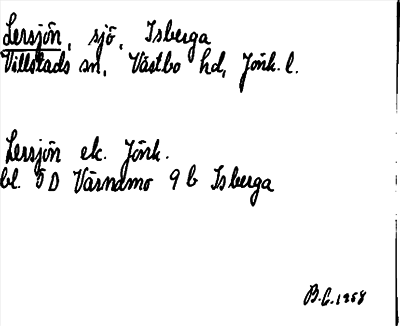 Lersjön, sjö, Isberga
Villstads sn, Västbo hd, Jönk. l.
Lersjön ek. Jönk.
bl. 5D Värnamo 9 b Isberga
B.C. 1958